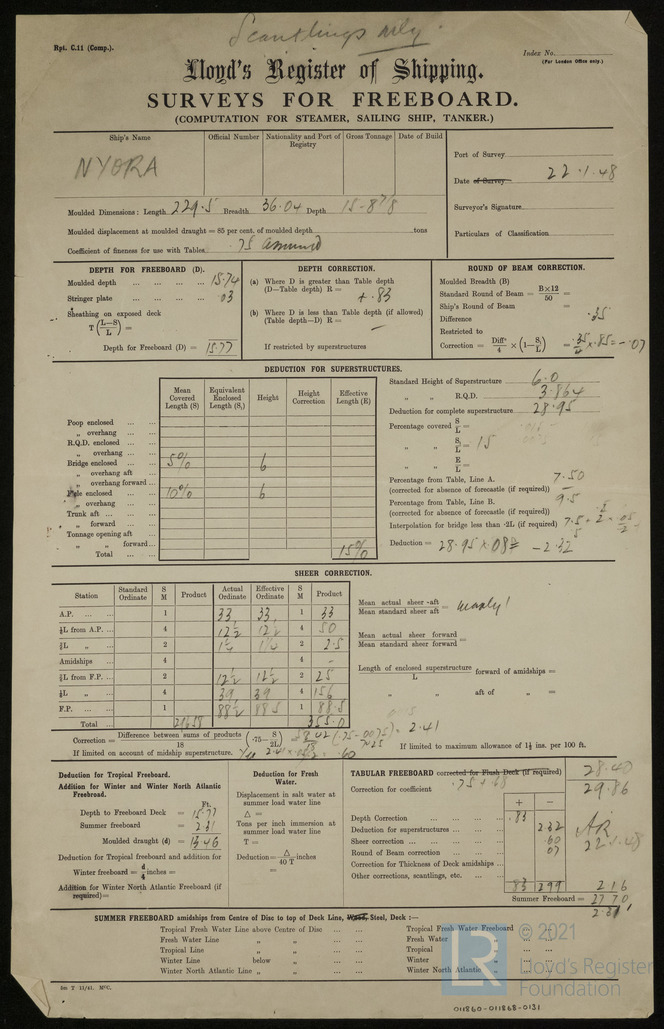 Scantlings only.
Rpt. C.11 (Comp.).
Index No.
(For London Office only.)
Lloyd's Register of Shipping.
SURVEYS FOR FREEBOARD.
(COMPUTATION FOR STEAMER, SAILING SHIP, TANKER.)
Ship's Name
Official Number
Nationality and Port of Registry
Gross Tonnage
Date of Build
NYORA
Port of Survey
Date of Survey 22.1.48
Surveyor's Signature
Particulars of Classification
Moulded Dimensions: Length 229.5 Breadth 36.04 Depth 15-8 7/8
Moulded displacement at moulded draught = 85 per cent. of moulded depth tons
Coefficient of fineness for use with Tables .75 assumed
DEPTH FOR FREEBOARD (D).
Moulded depth ... ... ... ... 15.74
Stringer plate ... ... ... ... 03
Sheathing on exposed deck
T (L—S / L) =
Depth for Freeboard (D) = 15.77
DEPTH CORRECTION.
(a) Where D is greater than Table depth
(D—Table depth) R = + .83
(b) Where D is less than Table depth (if allowed)
(Table depth—D) R = —
If restricted by superstructures
ROUND OF BEAM CORRECTION.
Moulded Breadth (B)
Standard Round of Beam = B×12 / 50 =
Ship's Round of Beam =
Difference .35
Restricted to
Correction = Diffce / 4 × (1— S₁ / L) = .35 / 4 × .85 = — .07
DEDUCTION FOR SUPERSTRUCTURES.
Mean Covered Length (S)
Equivalent Enclosed Length (S₁)
Height
Height Correction
Effective Length (E)
Poop enclosed ... ...
„ overhang ... ...
R.Q.D. enclosed ... ...
„ overhang ... ...
Bridge enclosed ... ... 5% 6
„ overhang aft ...
„ overhang forward ...
F'cle enclosed ... ... 10% 6
„ overhang ... ...
Trunk aft ... ... ...
„ forward ... ...
Tonnage opening aft ...
„ „ forward...
Total ... ... 15%
Standard Height of Superstructure 6.0
„ „ R.Q.D. 3.864
Deduction for complete superstructure 28.95
Percentage covered S / L =
„ „ S₁ / L = 15
„ „ E / L =
Percentage from Table, Line A. 7.50
(corrected for absence of forecastle (if required))
Percentage from Table, Line B. 9.5
(corrected for absence of forecastle (if required))
Interpolation for bridge less than .2L (if required)
Deduction = 28.95 × .08 = — 2.32
SHEER CORRECTION.
Station
Standard Ordinate
S M
Product
Actual Ordinate
Effective Ordinate
S M
Product
A.P. ... ... 1 33 33 1 33
⅙L from A.P. ... 4 12½ 12½ 4 50
⅓L „ ... 2 1¼ 1¼ 2 2.5
Amidships ... 4 4 —
⅓L from F.P. ... 2 12½ 12½ 2 25
⅙L „ ... 4 39 39 4 156
F.P. ... ... 1 88½ 88.5 1 88.5
Total ... 355.0
Mean actual sheer aft / Mean standard sheer aft =
Mean actual sheer forward / Mean standard sheer forward =
Length of enclosed superstructure / L forward of amidships =
„ „ aft of „ =
Correction = Difference between sums of products / 18 (.75— S / 2L) = 2.41
If limited on account of midship superstructure.
If limited to maximum allowance of 1½ ins. per 100 ft.
Deduction for Tropical Freeboard.
Addition for Winter and Winter North Atlantic Freeboard.
Ft.
Depth to Freeboard Deck = 15.77
Summer freeboard = 2.31
Moulded draught (d) = 13.46
Deduction for Tropical freeboard and addition for
Winter freeboard = d / 4 inches =
Addition for Winter North Atlantic Freeboard (if required)=
Deduction for Fresh Water.
Displacement in salt water at summer load water line
Δ =
Tons per inch immersion at summer load water line
T =
Deduction= Δ / 40 T inches
=
TABULAR FREEBOARD corrected for Flush Deck (if required) 28.40
Correction for coefficient 29.86
+ —
Depth Correction ... ... ... .83
Deduction for superstructures ... ... 2.32
Sheer correction ... ... ... .60
Round of Beam correction ... ... 07
Correction for Thickness of Deck amidships ...
Other corrections, scantlings, etc. ... ...
.83 2.99 2.16
Summer Freeboard = 27.70
2.31
AR
22.1.48
SUMMER FREEBOARD amidships from Centre of Disc to top of Deck Line, Wood, Steel, Deck :—
Tropical Fresh Water Line above Centre of Disc ... ...
Fresh Water Line „ „ ... ...
Tropical Line „ „ ... ...
Winter Line below „ ... ...
Winter North Atlantic Line „ „ ... ...
Tropical Fresh Water Freeboard ... ...
Fresh Water „ ... ...
Tropical „ ... ...
Winter „ ... ...
Winter North Atlantic „ ... ...
LR
© 2021
Lloyd's Register
Foundation
011860-011868-0131